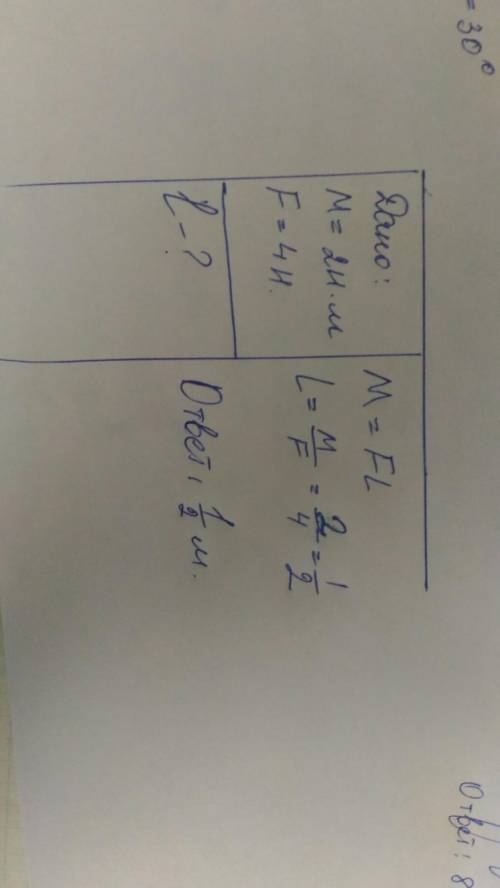 = 30°
Дано:
M = 2Н·м
F = 4Н.
l - ?
M = FL
L = M/F = 2/4 = 1/2
Ответ: 1/2 м.
Ответ: 8